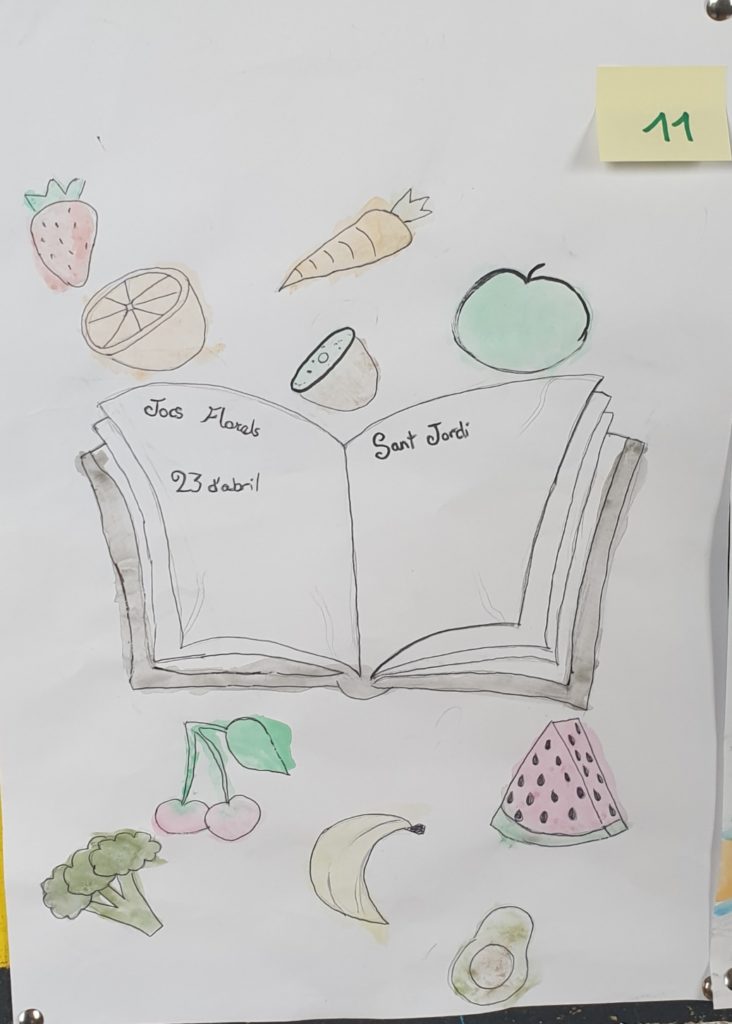 11
Jocs Florals
23 d'abril
Sant Jordi